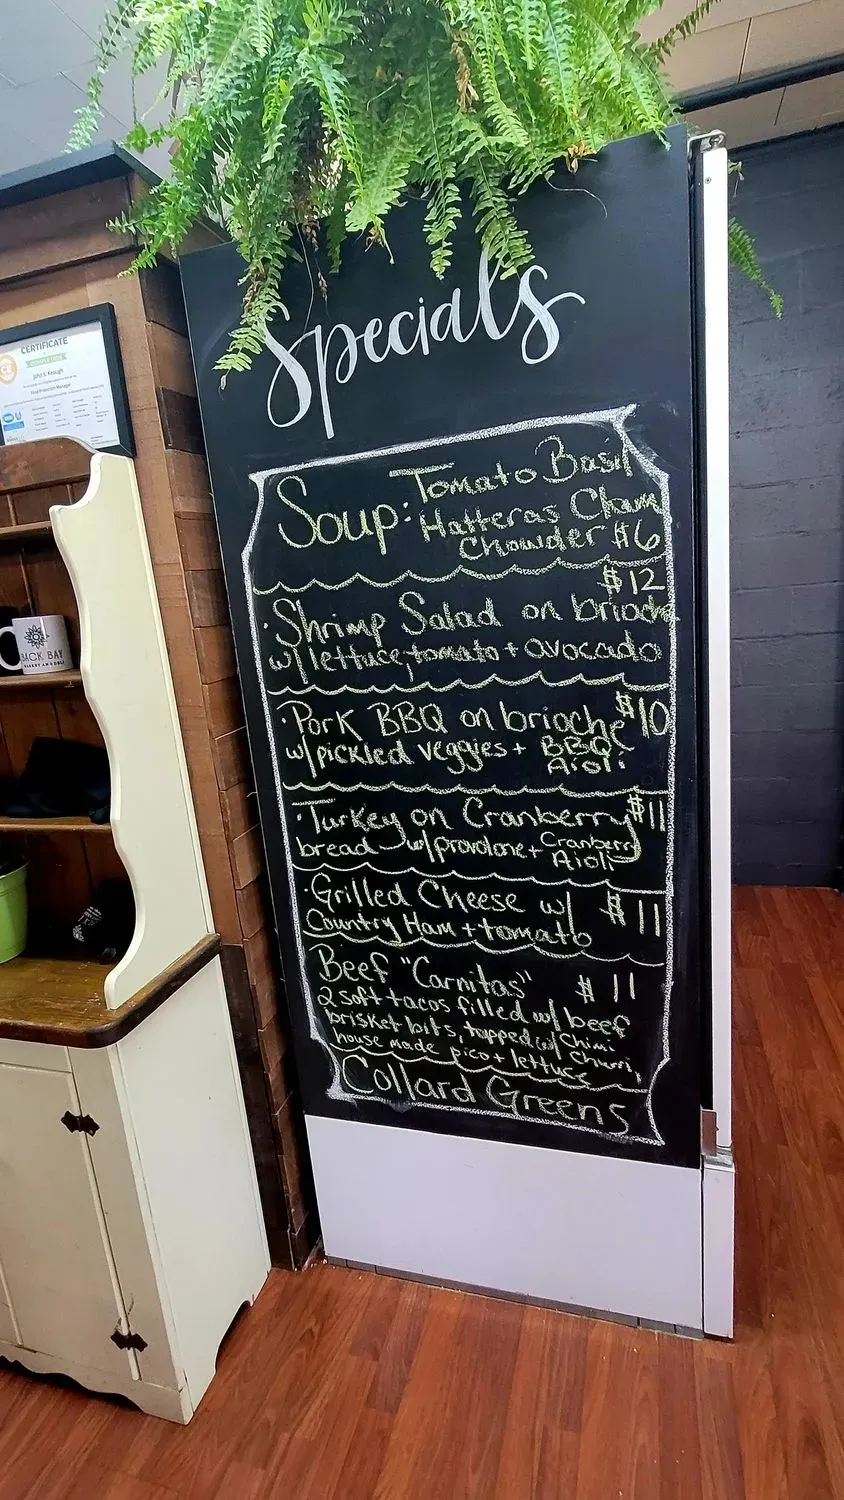 Specials
Soup: Tomato Basil
Hatteras Clam
Chowder $6
$12
· Shrimp Salad on brioche
w/ lettuce, tomato + avocado
· Pork BBQ on brioche $10
w/ pickled veggies + BBQ
Aioli
· Turkey on Cranberry $11
bread w/ provolone + Cranberry
Aioli
· Grilled Cheese w/ $11
Country Ham + tomato
Beef "Carnitas" $11
2 soft tacos filled w/ beef
brisket bits, topped w/ chimi
churri,
house made pico + lettuce
Collard Greens
CERTIFICATE
John S. Keough
Food Protection Manager
BACK BAY